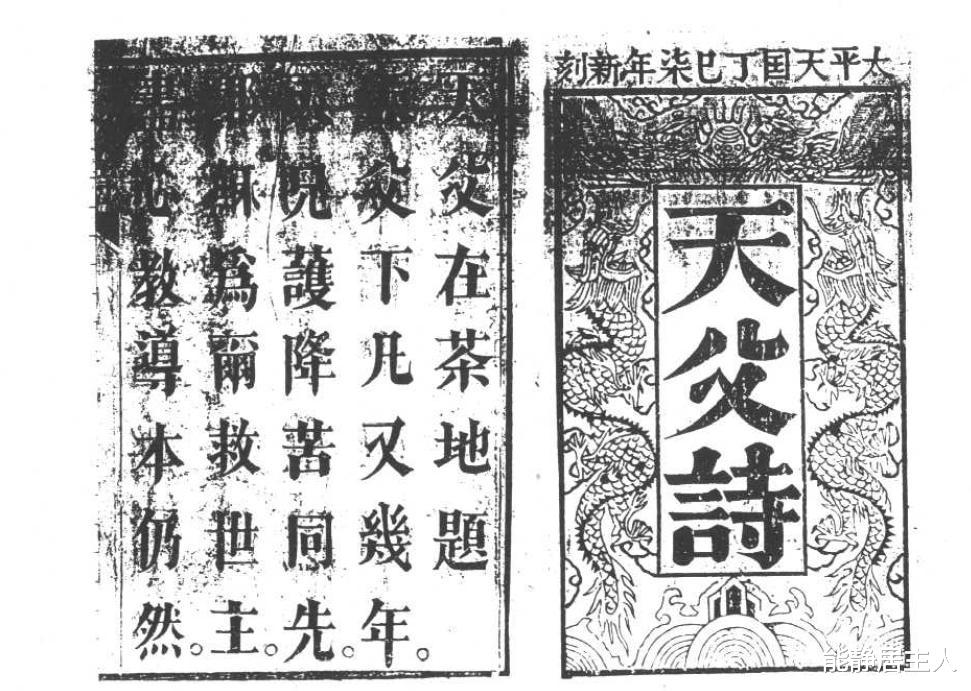 太平天囯丁巳柒年新刻
天父詩
天父在茶地題
父下凡又幾年。
兄護降苦同先。
耶穌爲爾救世主。
盡心教導本仍然。
能静居主人